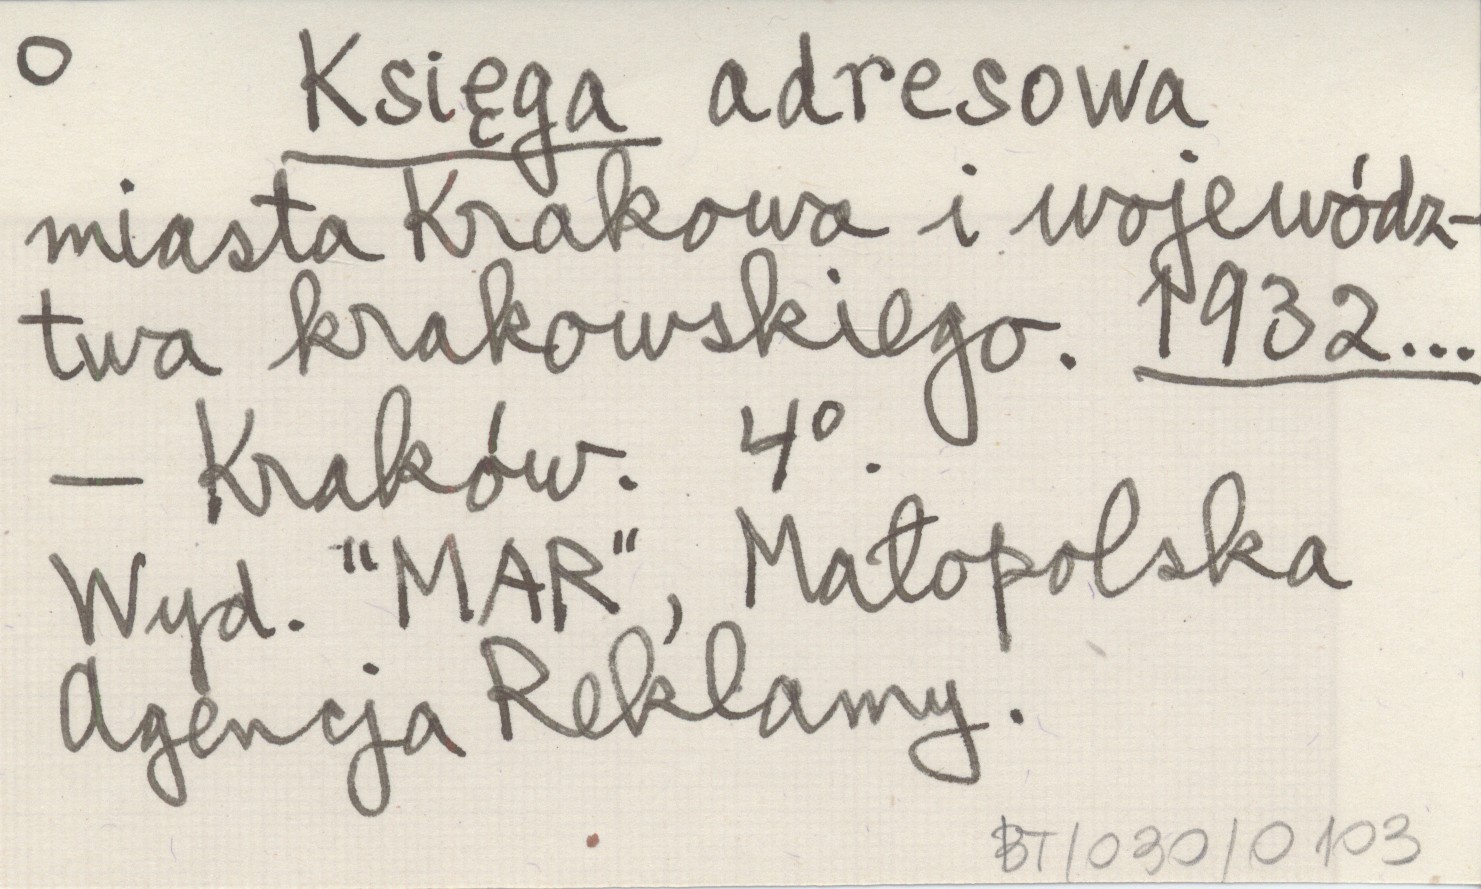 O Księga adresowa
miasta Krakowa i wojewódz-
twa krakowskiego. 1932...
— Kraków. 4°.
Wyd. "MAR", Małopolska
Agencja Reklamy.
BT/030/0103